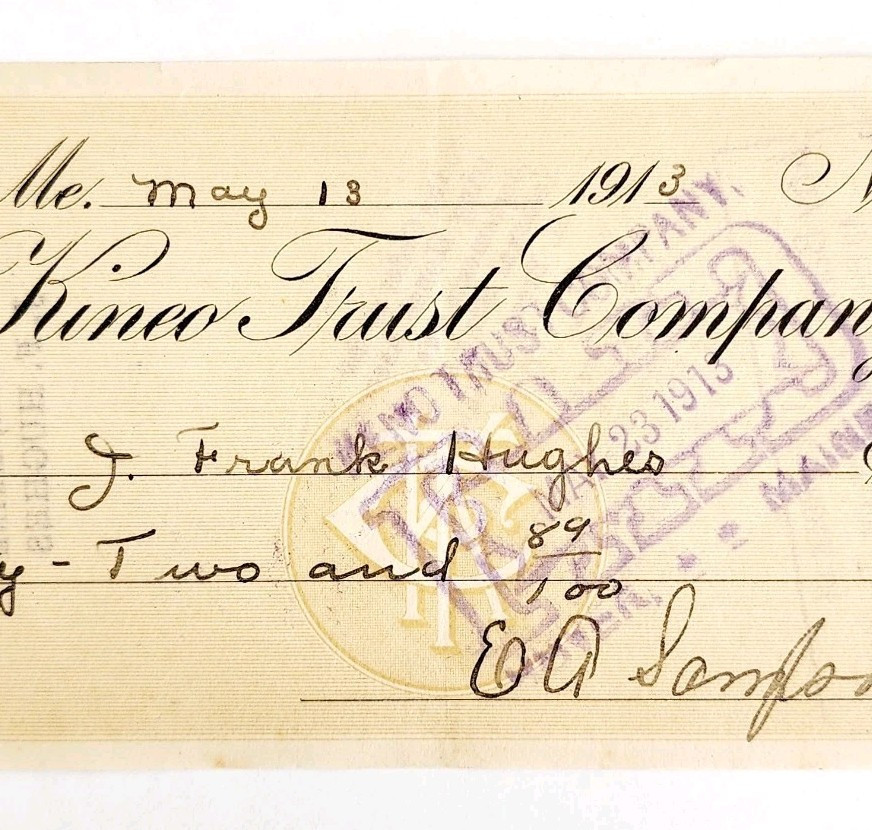 Me. May 13 1913 N
Kineo Trust Company
J. Frank Hughes
y-Two and 89/100
E A Sampso
KINEO TRUST COMPANY,
PAID
MAY 23 1913
DOVER, MAINE
HUGHES